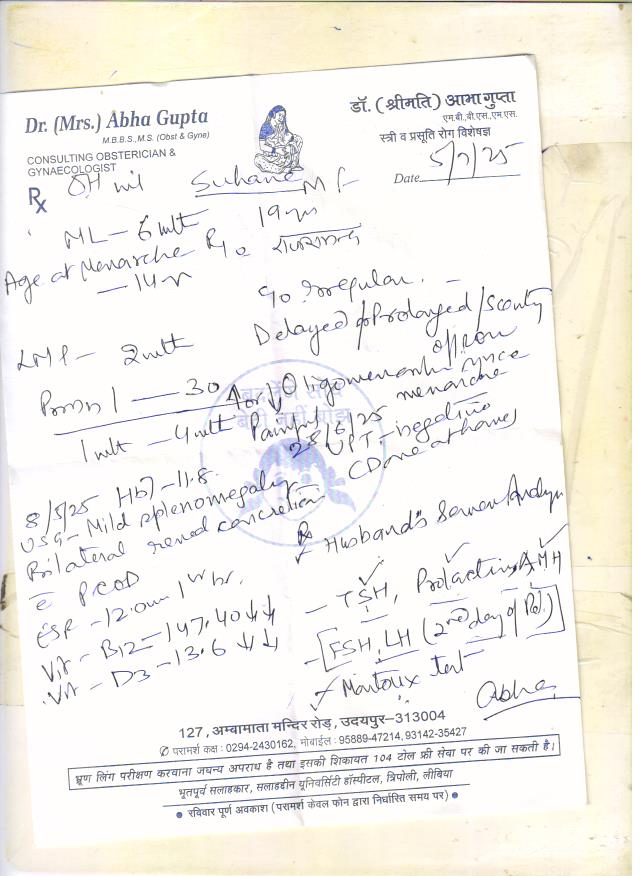 Dr. (Mrs.) Abha Gupta
M.B.B.S., M.S. (Obst & Gyne)
CONSULTING OBSTERICIAN &
GYNAECOLOGIST
डॉ. (श्रीमति) आभा गुप्ता
एम.बी.,बी.एस.,एम.एस.
स्त्री व प्रसूति रोग विशेषज्ञ
Date 5/7/25
Rx
OH nil
ML - 6 mth
19 yr
Age at Menarche
- 14 yr
राजसमन्द
c/o Irregular.
LMP - 2 mth
Delayed / Prolonged / Scanty
off/on
Oligomenorrhea since
menarche
1 mth - 4 mth
Painful
28/6/25
UPT - negative
(Done at home)
8/5/25 Hb) - 11.8
USG - Mild splenomegaly
Bilateral renal concretion
c̄ PCOD
ESR - 12.0 mm 1st hr.
Vit - B12 - 147.40 ↓↓
Vit - D3 - 13.6 ↓↓
Husband's Semen Analysis
- TSH, Prolactin, AMH
- FSH, LH (2nd day of Pd.)
Mantoux test
Abha
127, अम्बामाता मन्दिर रोड़, उदयपुर-313004
✆ परामर्श कक्ष : 0294-2430162, मोबाईल : 95889-47214, 93142-35427
भ्रूण लिंग परीक्षण करवाना जघन्य अपराध है तथा इसकी शिकायत 104 टोल फ्री सेवा पर की जा सकती है।
भूतपूर्व सलाहकार, सलाहद्दीन यूनिवर्सिटी हॉस्पीटल, त्रिपोली, लीबिया
● रविवार पूर्ण अवकाश (परामर्श केवल फोन द्वारा निर्धारित समय पर) ●